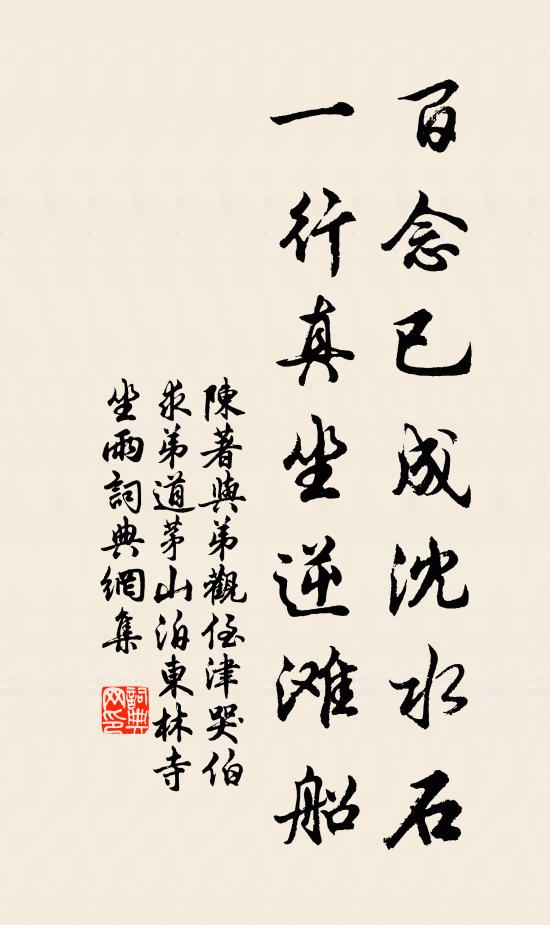 百念已成沈水石
一行真坐逆滩船
陳著與弟觀侄津哭伯
求弟道茅山泊東林寺
坐雨詞典網集
詞典
网印